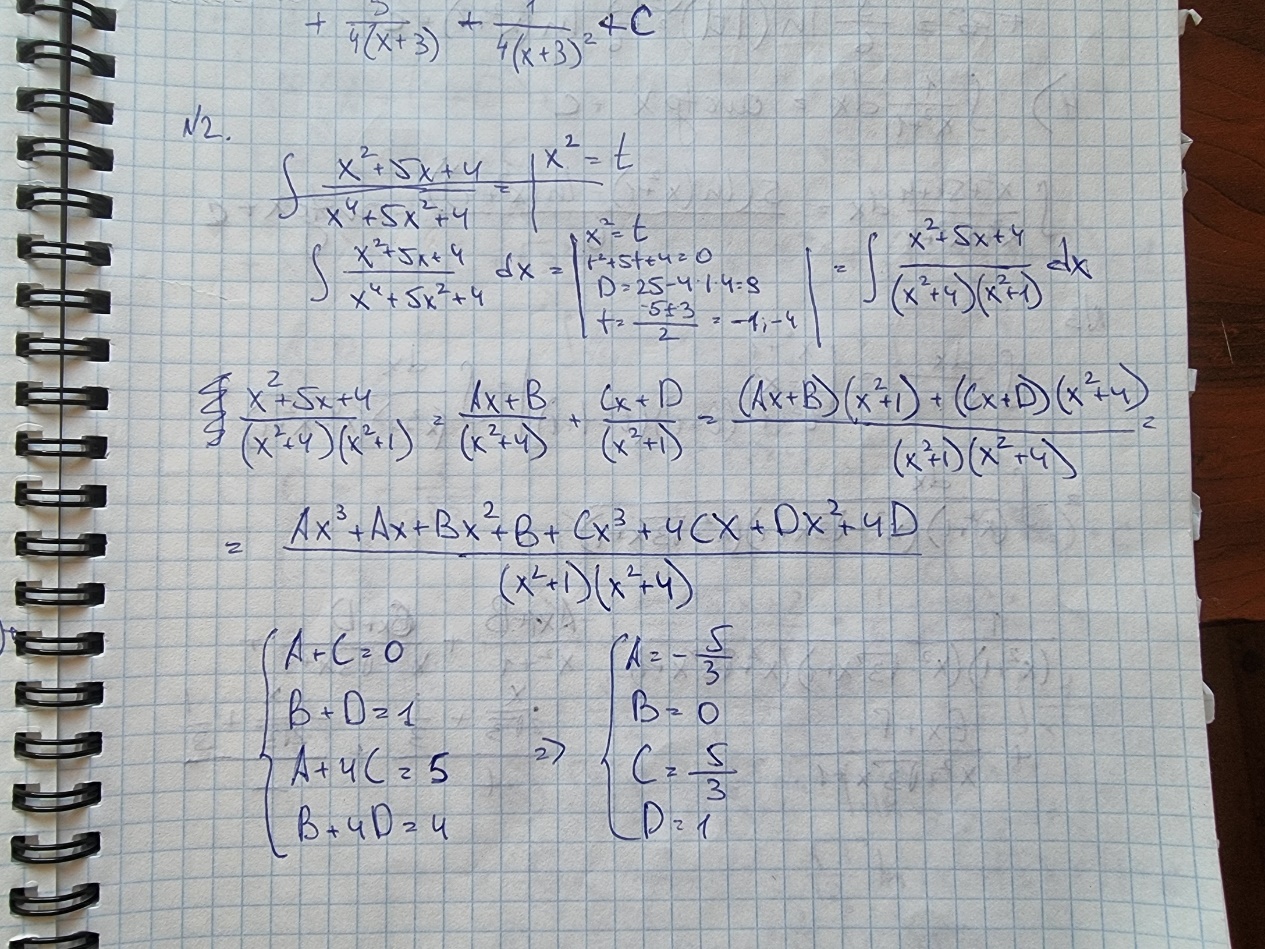 + 5/(4(x+3)) + 1/(4(x+3)²) + C
N2.
∫ (x²+5x+4)/(x⁴+5x²+4) = | x² = t
∫ (x²+5x+4)/(x⁴+5x²+4) dx = | x² = t
t²+5t+4=0
D=25-4·1·4=9
t = (-5±3)/2 = -1; -4 | = ∫ (x²+5x+4)/((x²+4)(x²+1)) dx
(x²+5x+4)/((x²+4)(x²+1)) = (Ax+B)/(x²+4) + (Cx+D)/(x²+1) = ((Ax+B)(x²+1) + (Cx+D)(x²+4))/((x²+1)(x²+4)) =
= (Ax³+Ax+Bx²+B+Cx³+4Cx+Dx²+4D)/((x²+1)(x²+4))
{ A+C=0
B+D=1
A+4C=5
B+4D=4
=> { A = -5/3
B = 0
C = 5/3
D = 1